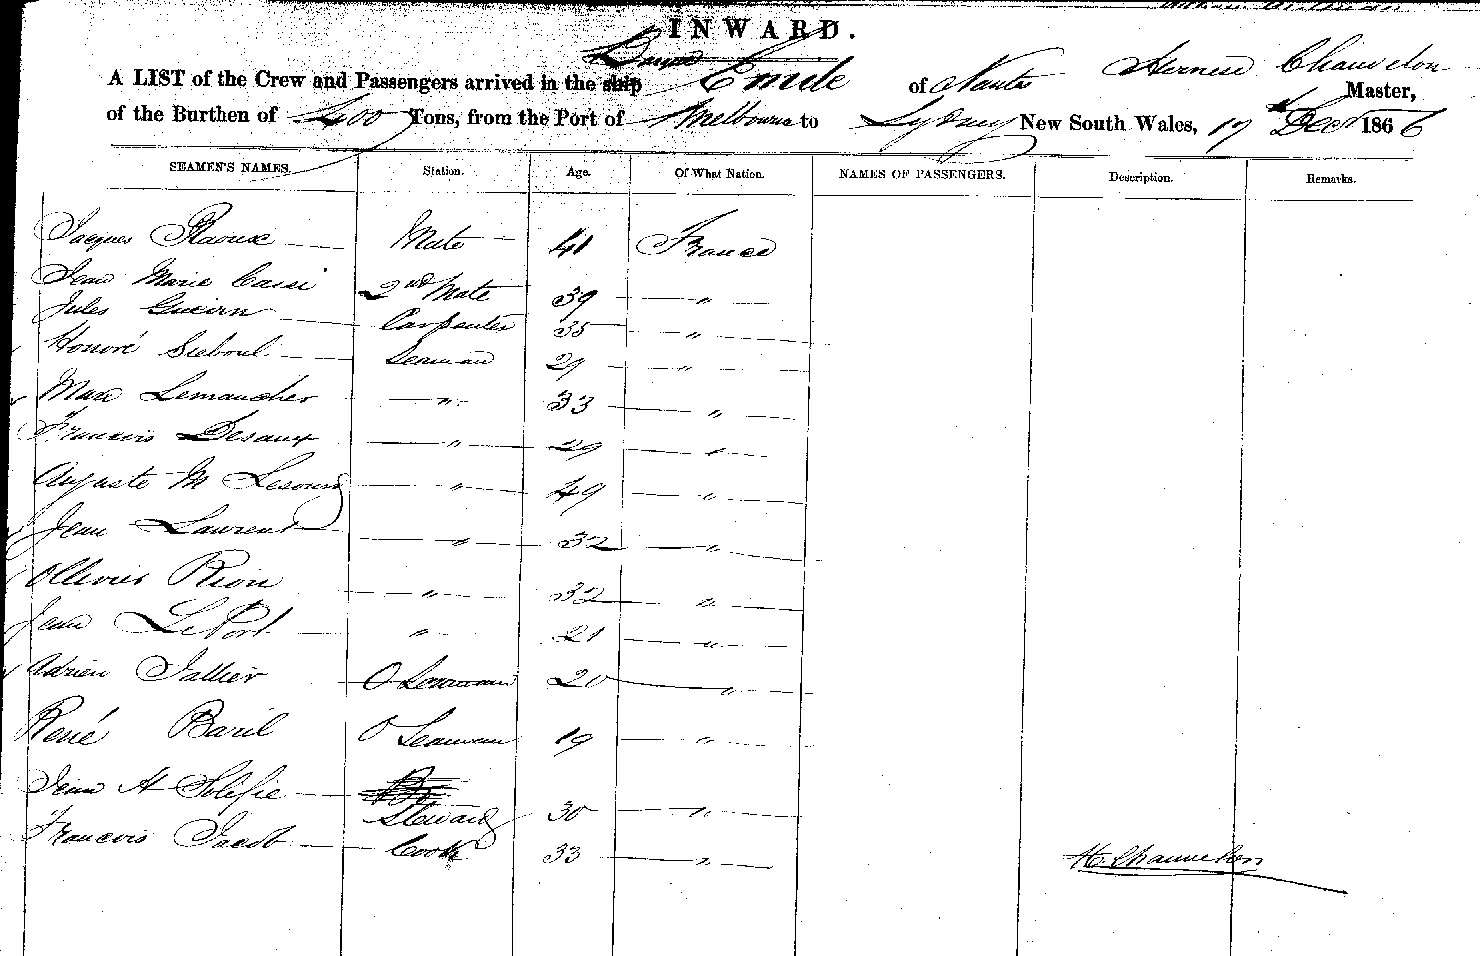 INWARD.
A LIST of the Crew and Passengers arrived in the ship Barque Emile of Nantes Chauvelon Master,
of the Burthen of 400 Tons, from the Port of Melbourne to Sydney New South Wales, 17th Decr 1866
SEAMEN'S NAMES. Station. Age. Of What Nation. NAMES OF PASSENGERS. Description. Remarks.
Jacques Raoux Mate 41 France
Jean Marie Cassi 2nd Mate 39 "
Jules Guern Carpenter 35 "
Honoré Seaman 29 "
Marc Lemaucher " 33 "
Francois Desaux " 29 "
Auguste M Lesourd " 49 "
Jean Laurent " 32 "
Ollivier Rion " 32 "
Jean LePort " 21 "
Adrien Jallier O Seaman 20 "
René Baril O Seaman 19 "
Jean H Solifie Steward 30 "
Francois Jacob Cook 33 "
H Chauvelon